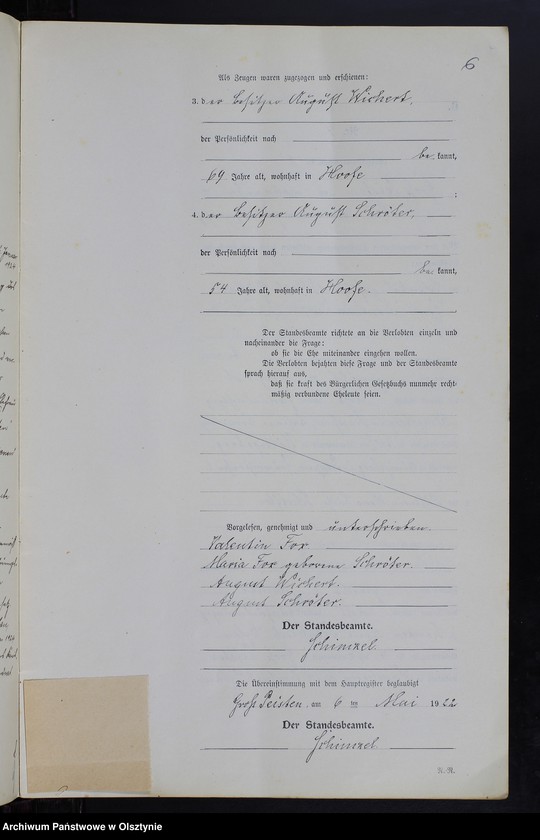 6
Als Zeugen waren zugezogen und erschienen:
3. der Besitzer August Wichert,
der Persönlichkeit nach
be kannt,
69 Jahre alt, wohnhaft in Hoofe
;
4. der Besitzer August Schröter,
der Persönlichkeit nach
be kannt,
54 Jahre alt, wohnhaft in Hoofe.
Der Standesbeamte richtete an die Verlobten einzeln und
nacheinander die Frage:
ob sie die Ehe miteinander eingehen wollen.
Die Verlobten bejahten diese Frage und der Standesbeamte
sprach hierauf aus,
daß sie kraft des Bürgerlichen Gesetzbuchs nunmehr recht-
mäßig verbundene Eheleute seien.
Vorgelesen, genehmigt und unterschrieben
Valentin Fox
Maria Fox geborene Schröter.
August Wichert.
August Schröter.
Der Standesbeamte.
Schimkel.
Die Übereinstimmung mit dem Hauptregister beglaubigt
Groß Peisten, am 6 ten Mai 1922
Der Standesbeamte.
Schimkel.
Archiwum Państwowe w Olsztynie